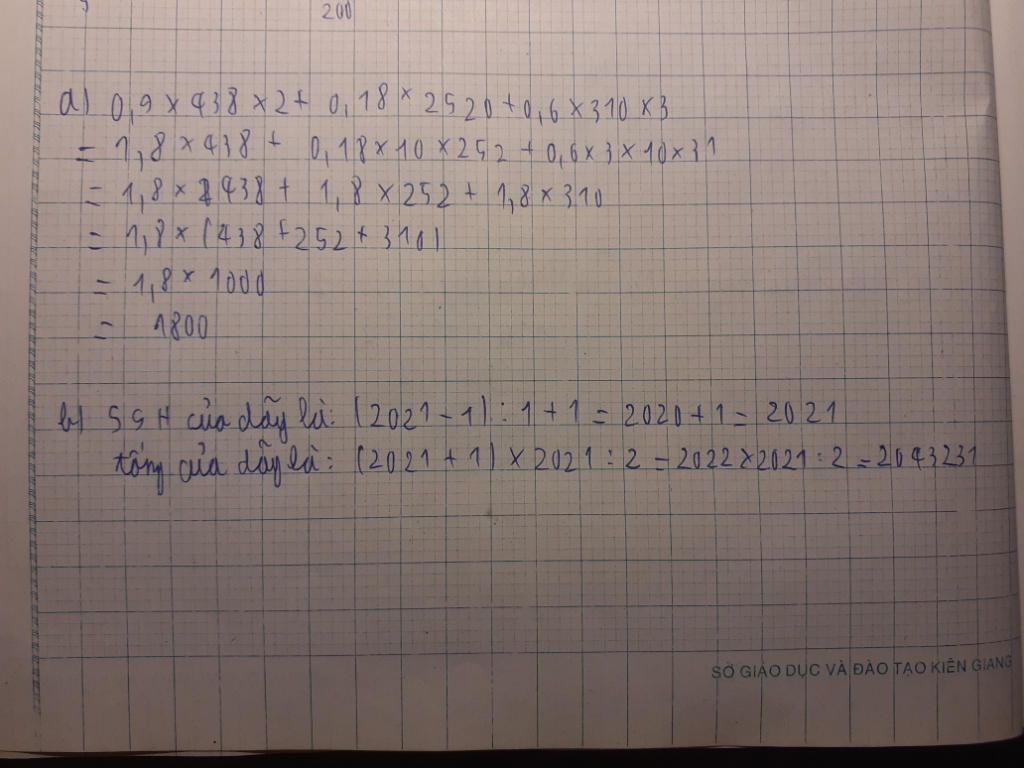 200
a) 0,9 × 438 × 2 + 0,18 × 2520 + 0,6 × 310 × 3
= 1,8 × 438 + 0,18 × 10 × 252 + 0,6 × 3 × 10 × 31
= 1,8 × 438 + 1,8 × 252 + 1,8 × 310
= 1,8 × (438 + 252 + 310)
= 1,8 × 1000
= 1800
b) SSH của dãy là: (2021 - 1) : 1 + 1 = 2020 + 1 = 2021
tổng của dãy là: (2021 + 1) × 2021 : 2 = 2022 × 2021 : 2 = 2043231
SỞ GIÁO DỤC VÀ ĐÀO TẠO KIÊN GIANG